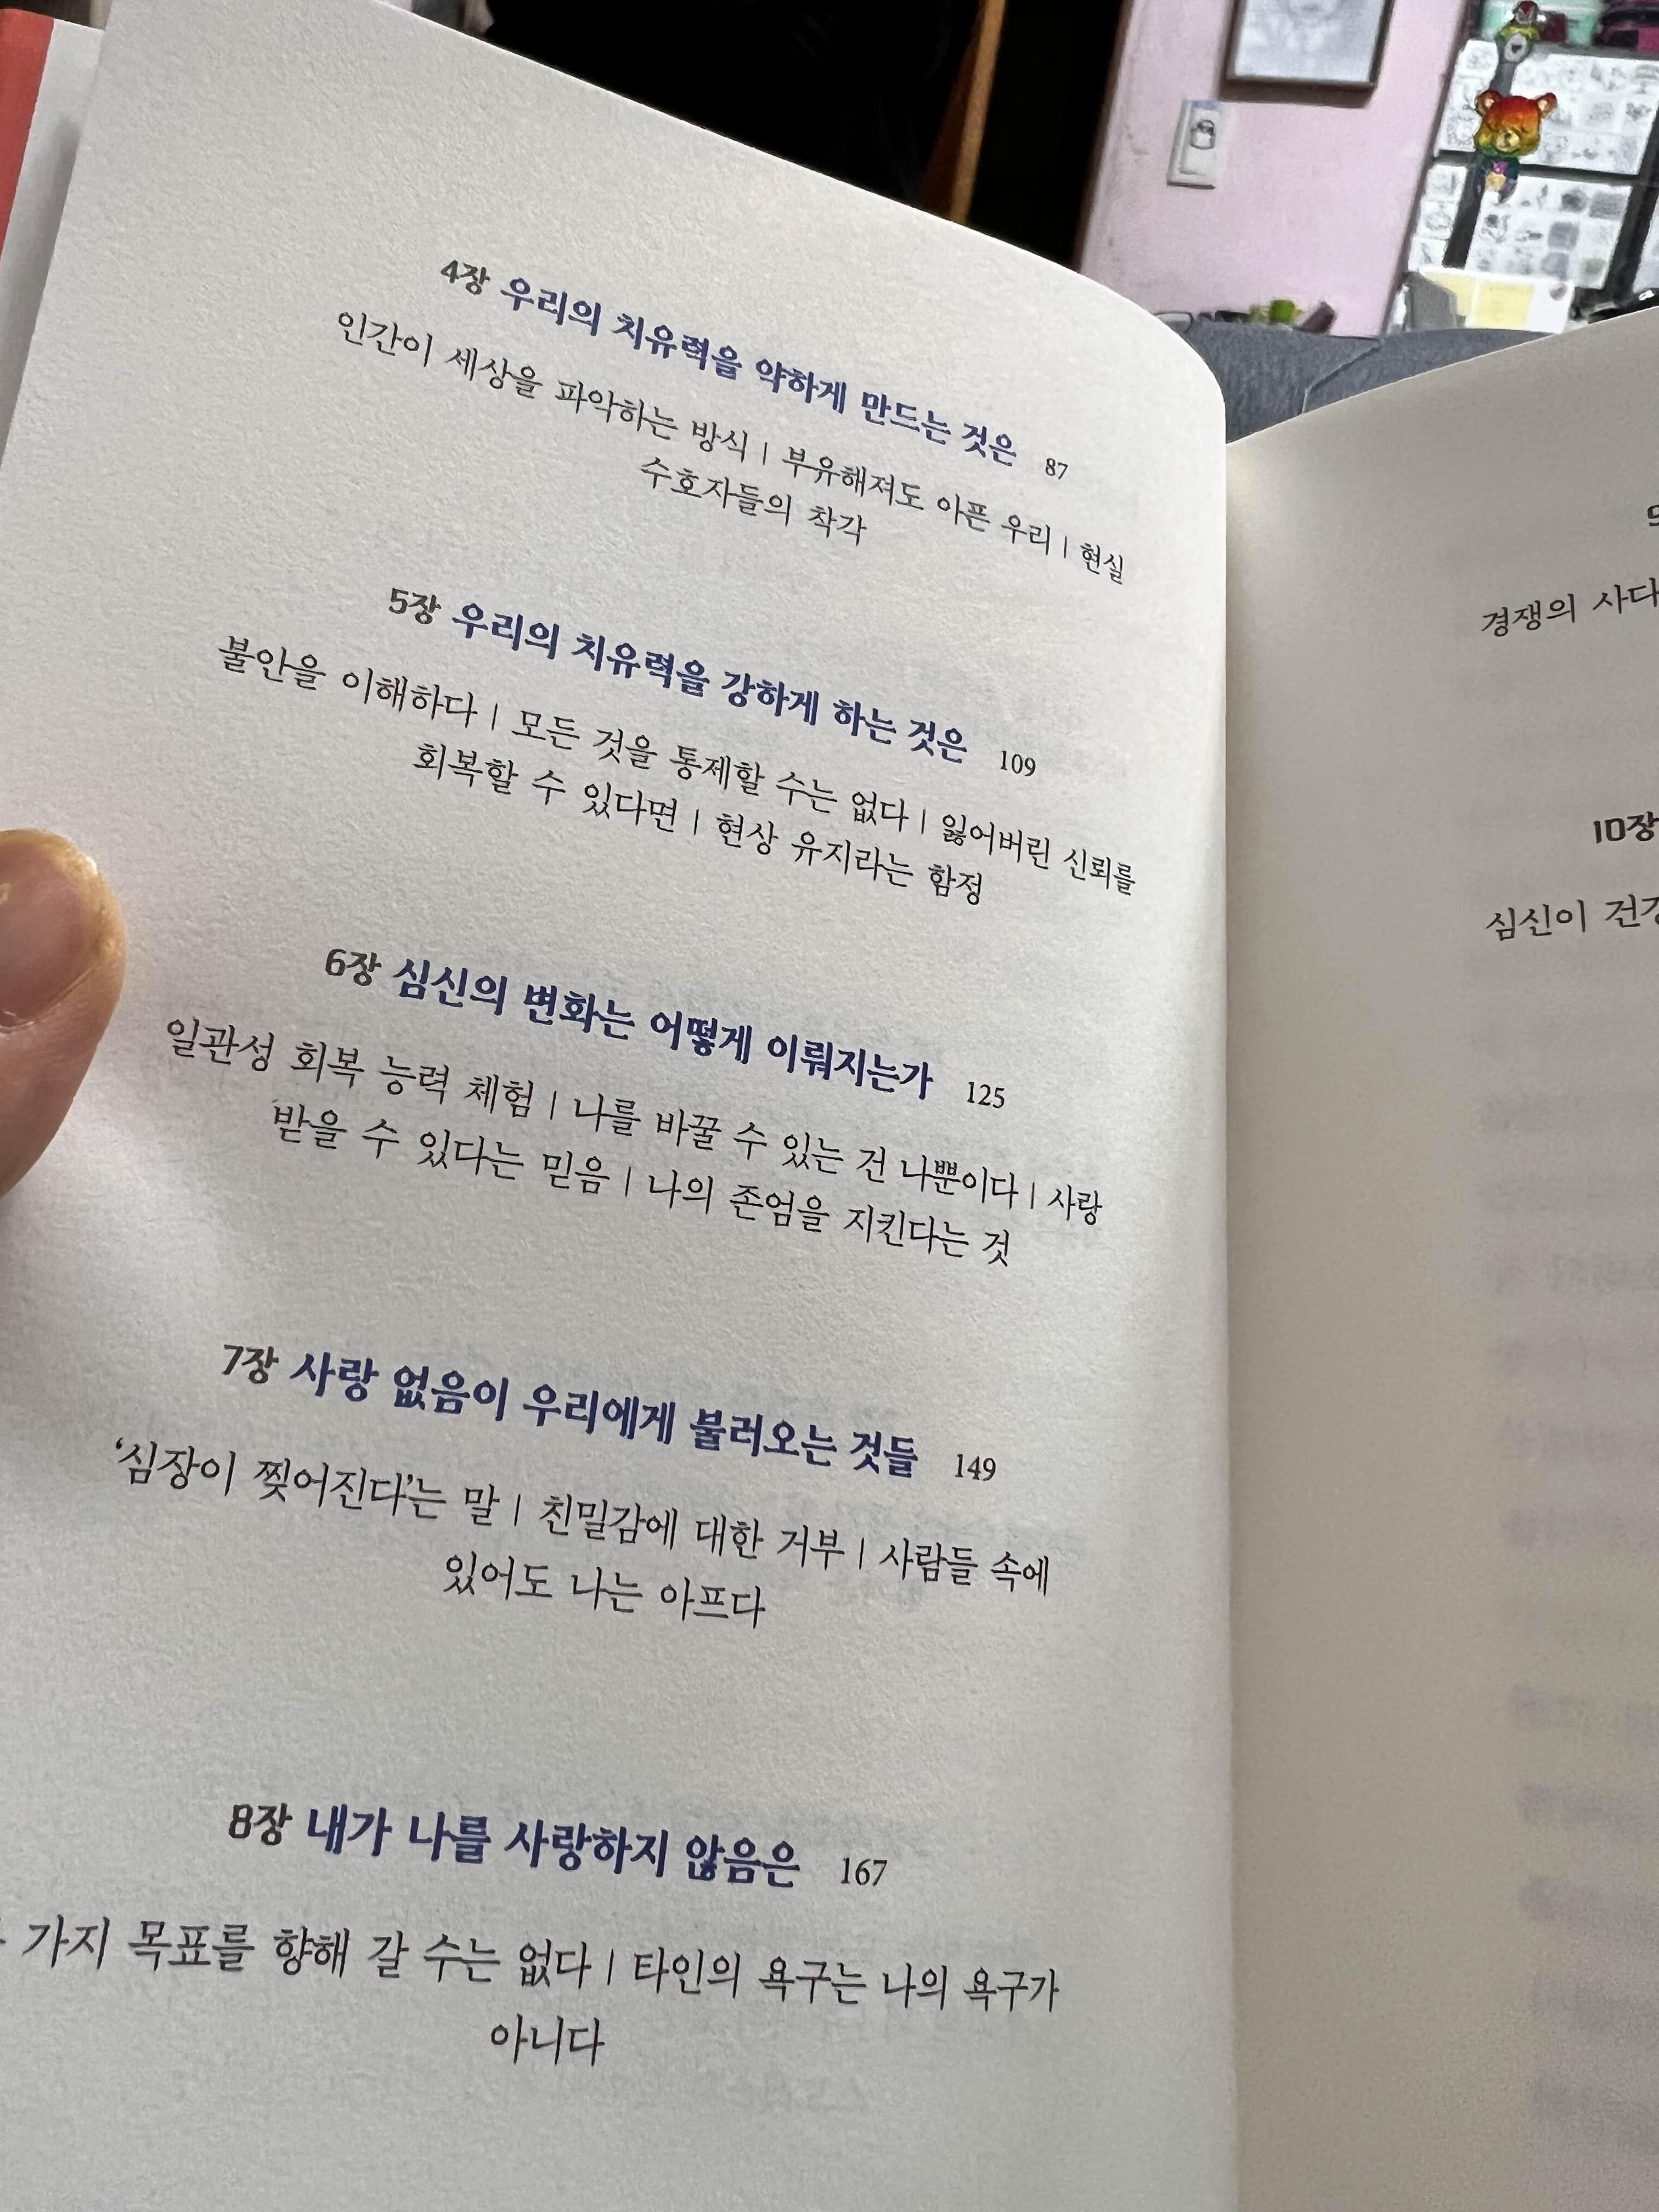 4장 우리의 치유력을 약하게 만드는 것은 87
인간이 세상을 파악하는 방식 | 부유해져도 아픈 우리 | 현실
수호자들의 착각
5장 우리의 치유력을 강하게 하는 것은 109
불안을 이해하다 | 모든 것을 통제할 수는 없다 | 잃어버린 신뢰를
회복할 수 있다면 | 현상 유지라는 함정
6장 심신의 변화는 어떻게 이뤄지는가 125
일관성 회복 능력 체험 | 나를 바꿀 수 있는 건 나뿐이다 | 사랑
받을 수 있다는 믿음 | 나의 존엄을 지킨다는 것
7장 사랑 없음이 우리에게 불러오는 것들 149
‘심장이 찢어진다’는 말 | 친밀감에 대한 거부 | 사람들 속에
있어도 나는 아프다
8장 내가 나를 사랑하지 않음은 167
가지 목표를 향해 갈 수는 없다 | 타인의 욕구는 나의 욕구가
아니다
경쟁의 사다
10장
심신이